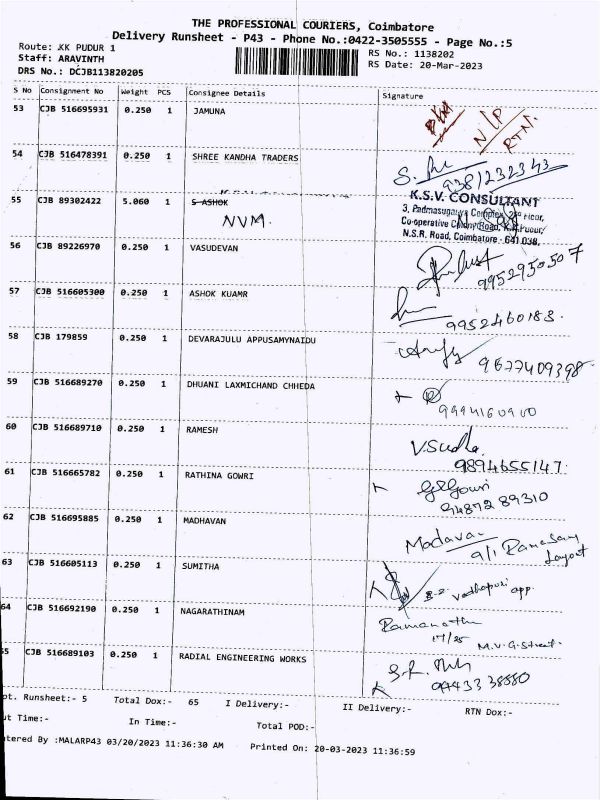 THE PROFESSIONAL COURIERS, Coimbatore
Delivery Runsheet - P43 - Phone No.:0422-3505555 - Page No.:5
Route: KK PUDUR 1
RS No.: 1138202
Staff: ARAVINTH
RS Date: 20-Mar-2023
DRS No.: DCJB113820205
S No Consignment No Weight PCS Consignee Details Signature
53 CJB 516695931 0.250 1 JAMUNA
N/P
RTN.
54 CJB 516478391 0.250 1 SHREE KANDHA TRADERS
9381232343
55 CJB 89302422 5.060 1 S ASHOK
NVM.
K.S.V. CONSULTANT
3, Padmasugurya Complex, 2nd Floor,
Co-operative Colony Road, K.K.Pudur,
N.S.R. Road, Coimbatore - 641 038.
56 CJB 89226970 0.250 1 VASUDEVAN
9952950507
57 CJB 516605300 0.250 1 ASHOK KUAMR
9952460183.
58 CJB 179859 0.250 1 DEVARAJULU APPUSAMYNAIDU
9677409398
59 CJB 516689270 0.250 1 DHUANI LAXMICHAND CHHEDA
9994160900
60 CJB 516689710 0.250 1 RAMESH
V.Sudha
9894655147.
61 CJB 516665782 0.250 1 RATHINA GOWRI
94872 89310
62 CJB 516695885 0.250 1 MADHAVAN
Madavan
9/1 Ramasamy
Layout
63 CJB 516605113 0.250 1 SUMITHA
app.
64 CJB 516692190 0.250 1 NAGARATHINAM
Ramanathan
17/25
M.V.G. Street.
65 CJB 516689103 0.250 1 RADIAL ENGINEERING WORKS
99433 38580
pt. Runsheet:- 5 Total Dox:- 65 I Delivery:- II Delivery:- RTN Dox:-
ut Time:- In Time:- Total POD:-
tered By :MALARP43 03/20/2023 11:36:30 AM Printed On: 20-03-2023 11:36:59